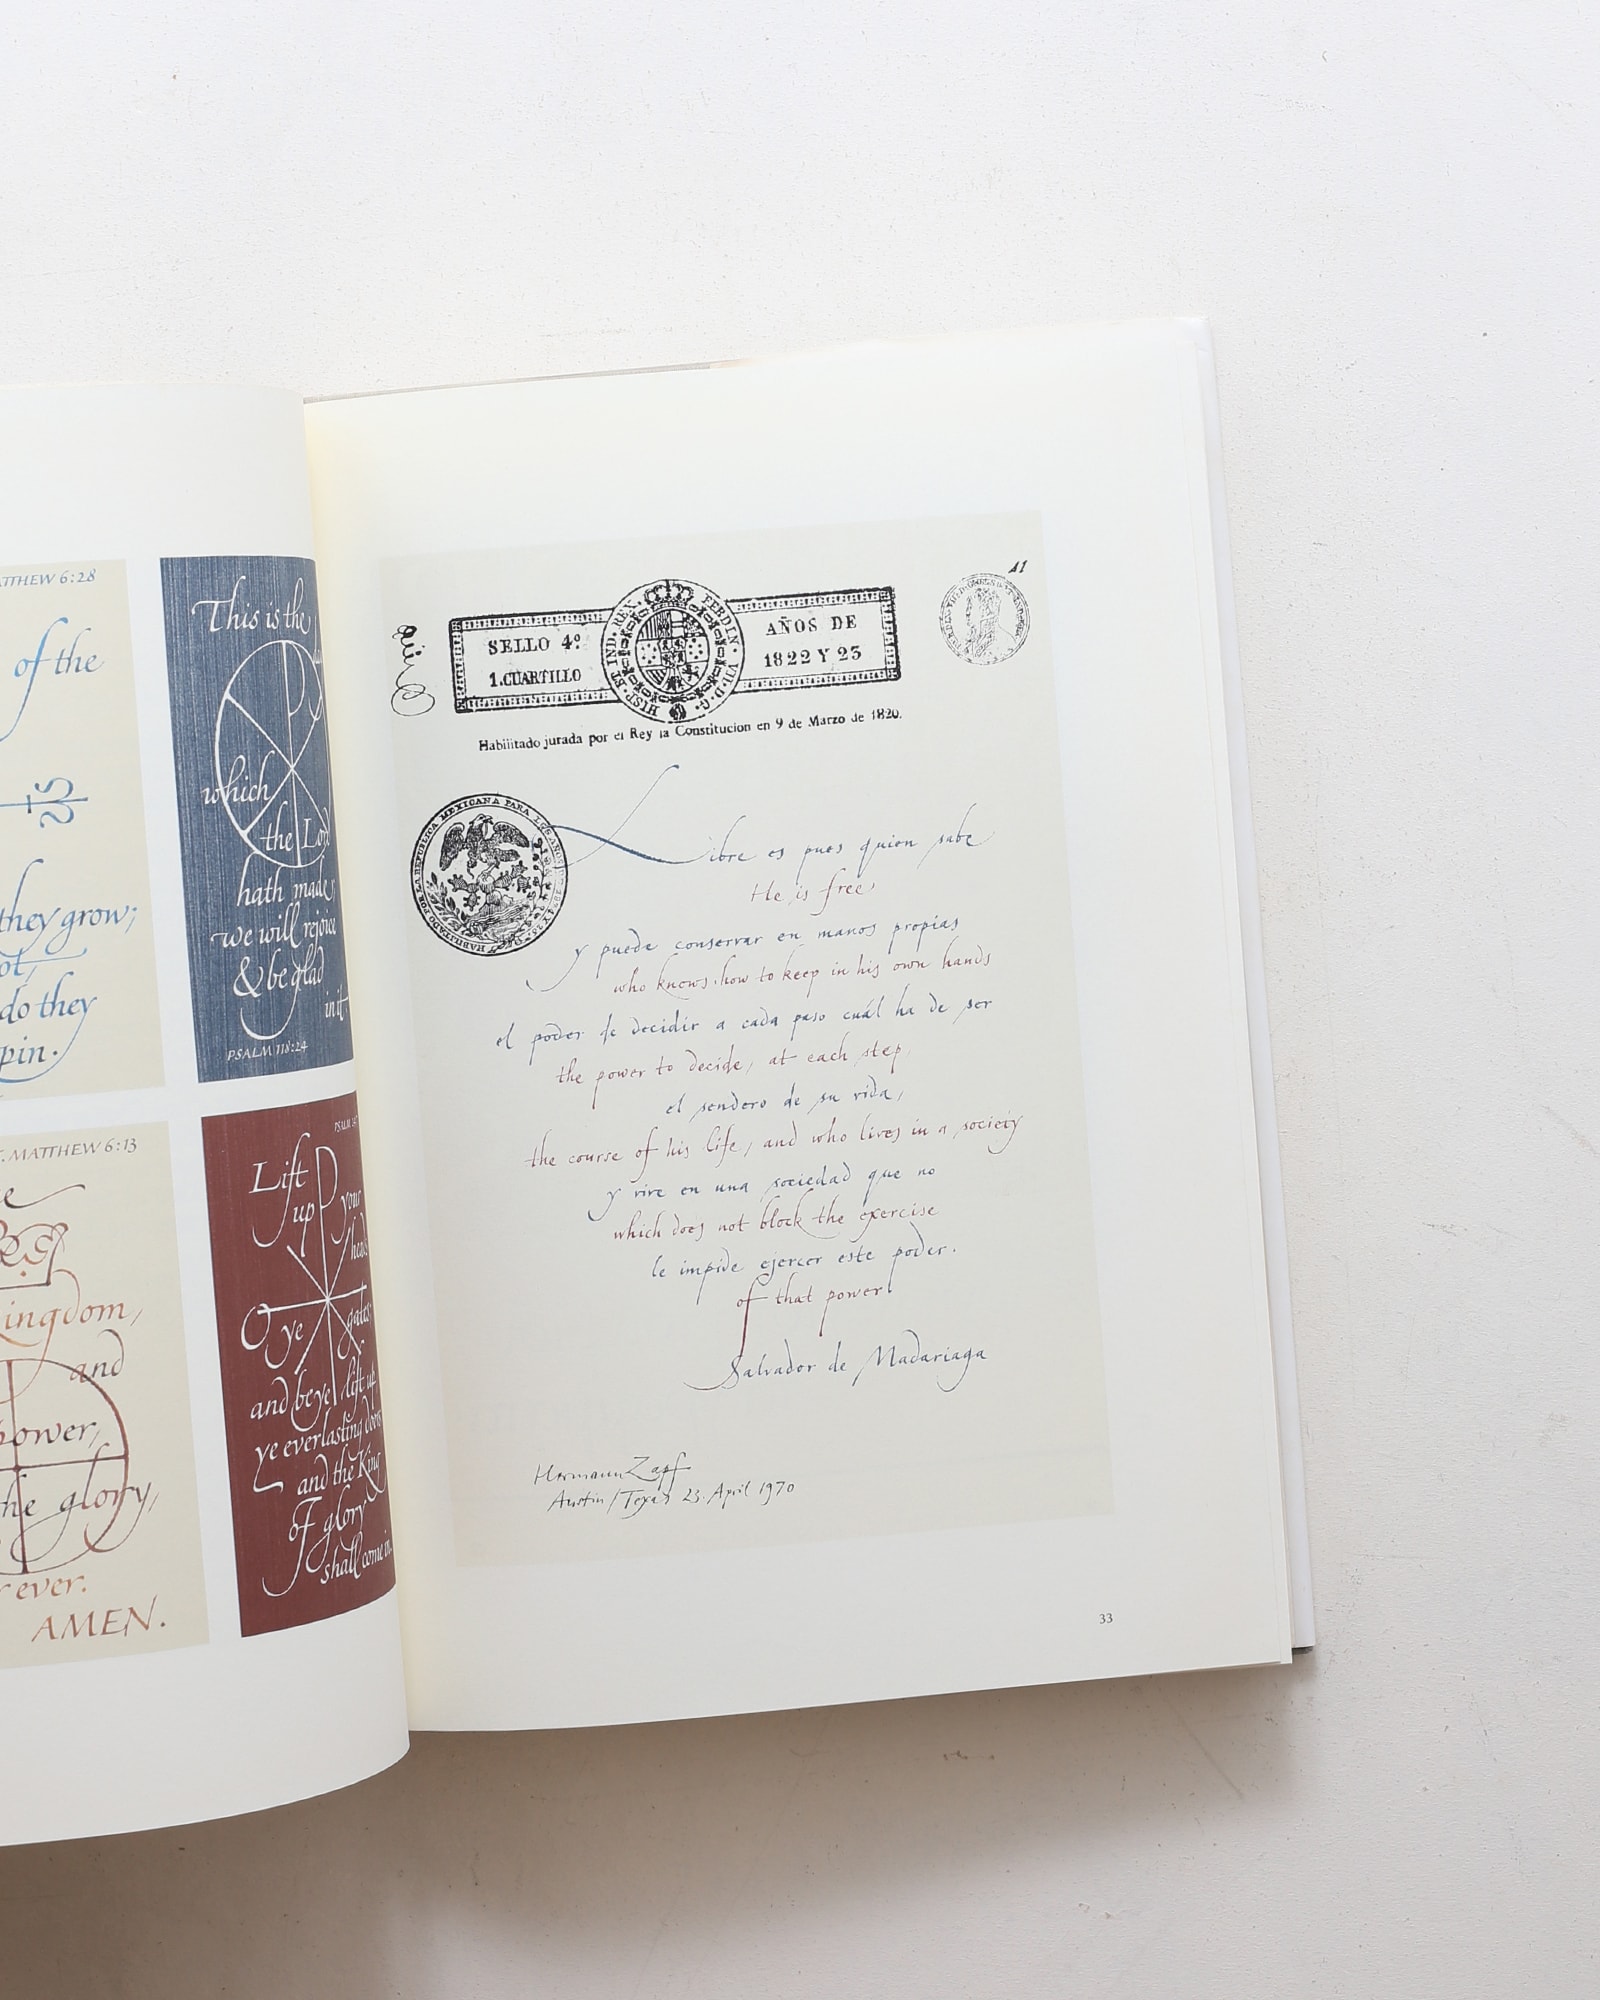 ATTHEW 6:28
of the
they grow;
do they
pin.
This is the
which
the Lord
hath made
we will rejoice
& be glad
in it
PSALM 118:24
T. MATTHEW 6:13
ingdom,
and
power,
he glory,
r ever.
AMEN.
PSALM 24:7
Lift
up your
heads
O ye gates;
and be ye lift up
ye everlasting doors
and the King
of glory
shall come in.
SELLO 4º.
1. CUARTILLO
HISP. ET IND. REX. FERDIN. VII. D. G.
AÑOS DE
1822 Y 23
Habilitado jurada por el Rey la Constitucion en 9 de Marzo de 1820.
HABILITADO POR LA REPUBLICA MEXICANA PARA LOS AÑOS
Libre es pues quien sabe
He is free,
y puede conservar en manos propias
who knows how to keep in his own hands
el poder de decidir a cada paso cuál ha de ser
the power to decide, at each step,
el sendero de su vida,
the course of his life, and who lives in a society
y vive en una sociedad que no
which does not block the exercise
le impide ejercer este poder.
of that power.
Salvador de Madariaga
Hermann Zapf
Austin/Texas 23. April 1970
33